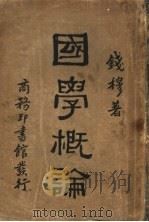 錢穆著
國學概論
商務印書館發行